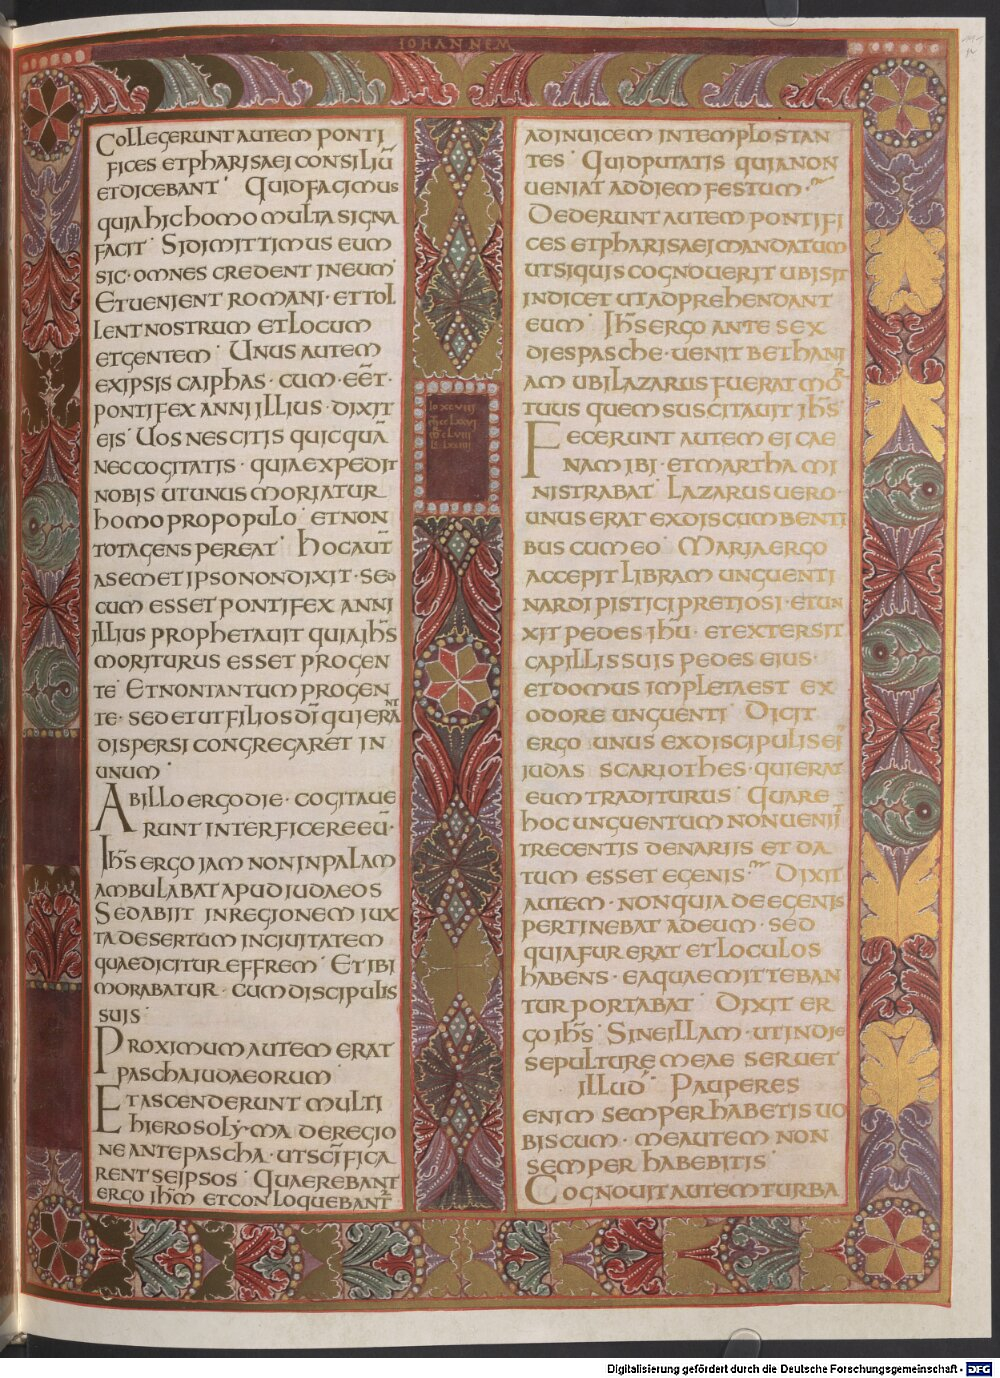 IOHANNEM
COLLEGERUNT AUTEM PONTI
FICES ET PHARISAEI CONSILIŪ
ET DICEBANT· QUID FACIMUS
QUIA HIC HOMO MULTA SIGNA
FACIT· SI DIMITTIMUS EUM
SIC· OMNES CREDENT IN EUM·
ET UENIENT ROMANI· ET TOL
LENT NOSTRUM ET LOCUM
ET GENTEM· UNUS AUTEM
EX IPSIS CAIPHAS· CUM· EĒT·
PONTIFEX ANNI ILLIUS· DIXIT
EIS· UOS NESCITIS QUICQUĀ
NEC COGITATIS· QUIA EXPEDIT
NOBIS UT UNUS MORIATUR
HOMO PRO POPULO· ET NON
TOTA GENS PEREAT· HOC AUT̄
A SEMET IPSO NON DIXIT· SED
CUM ESSET PONTIFEX ANNI
ILLIUS PROPHETAUIT QUIA IH̄S
MORITURUS ESSET PRO GEN
TE· ET NON TANTUM PRO GEN
TE· SED ET UT FILIOS DĪ QUI ERANT
DISPERSI CONGREGARET IN
UNUM·
AB ILLO ERGO DIE· COGITAUE
RUNT INTERFICERE EŪ·
IH̄S ERGO IAM NON IN PALAM
AMBULABAT APUD IUDAEOS
SED ABIIT IN REGIONEM IUX
TA DESERTUM IN CIUITATEM
QUAE DICITUR EFFREM· ET IBI
MORABATUR· CUM DISCIPULIS
SUIS·
PROXIMUM AUTEM ERAT
PASCHA IUDAEORUM·
ET ASCENDERUNT MULTI
HIEROSOLYMA DE REGIO
NE ANTE PASCHA· UT SC̄IFICA
RENT SE IPSOS· QUAEREBANT
ERGO IH̄M ET CONLOQUEBANT̄
Io XCVIII
M̄ CCLXXVI
M̄ CLVIII
AD INUICEM IN TEMPLO STAN
TES· QUID PUTATIS QUIA NON
UENIAT AD DIEM FESTUM·
DEDERUNT AUTEM PONTIFI
CES ET PHARISAEI MANDATUM
UT SI QUIS COGNOUERIT UBI SIT
INDICET UT ADPREHENDANT
EUM· IH̄S ERGO ANTE SEX
DIES PASCHE· UENIT BETHANI
AM UBI LAZARUS FUERAT MOR
TUUS QUEM SUSCITAUIT IH̄S·
FECERUNT AUTEM EI CAE
NAM IBI· ET MARTHA MI
NISTRABAT· LAZARUS UERO·
UNUS ERAT EX DISCUMBENTI
BUS CUM EO· MARIA ERGO
ACCEPIT LIBRAM UNGUENTI
NARDI PISTICI PRETIOSI· ET UN
XIT PEDES IHŪ· ET EXTERSIT
CAPILLIS SUIS PEDES EIUS·
ET DOMUS IMPLETA EST EX
ODORE UNGUENTI· DICIT
ERGO UNUS EX DISCIPULIS EI
IUDAS SCARIOTHES· QUI ERAT
EUM TRADITURUS· QUARE
HOC UNGUENTUM NON UENIIT
TRECENTIS DENARIIS ET DA
TUM ESSET EGENIS· DIXIT
AUTEM· NON QUIA DE EGENIS
PERTINEBAT AD EUM· SED
QUIA FUR ERAT ET LOCULOS
HABENS· EA QUAE MITTEBAN
TUR PORTABAT· DIXIT ER
GO IH̄S· SINE ILLAM· UT IN DIE
SEPULTURĘ MEAE SERUET
ILLUD· PAUPERES
ENIM SEMPER HABETIS UO
BISCUM· ME AUTEM NON
SEMPER HABEBITIS·
COGNOUIT AUTEM TURBA
Digitalisierung gefördert durch die Deutsche Forschungsgemeinschaft - DFG